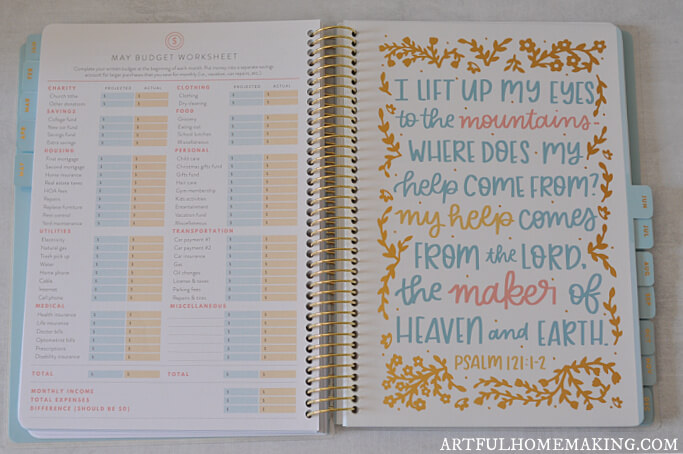 MAY BUDGET WORKSHEET
PROJECTED ACTUAL
CHARITY
Church tithe
Other donations
SAVINGS
College fund
New car fund
Savings fund
Extra savings
HOUSING
First mortgage
Second mortgage
Home insurance
Real estate taxes
HOA fees
Repairs
Replace furniture
Pest control
Yard maintenance
UTILITIES
Electricity
Natural gas
Trash pick up
Water
Home phone
Cable
Internet
Cell phone
MEDICAL
Health insurance
Life insurance
Doctor bills
Optometrist bills
Prescriptions
Disability insurance
TOTAL
PROJECTED ACTUAL
CLOTHING
Clothing
Dry cleaning
FOOD
Grocery
Eating out
School lunches
Miscellaneous
PERSONAL
Child care
Christmas gifts fund
Gifts fund
Hair care
Gym membership
Kids activities
Entertainment
Vacation fund
Miscellaneous
TRANSPORTATION
Car payment #1
Car payment #2
Car insurance
Gas
Oil changes
License & taxes
Parking fees
Repairs & tires
MISCELLANEOUS
TOTAL
MONTHLY INCOME
TOTAL EXPENSES
DIFFERENCE (SHOULD BE $0)
I LIFT UP MY EYES
to the mountains-
WHERE DOES MY
help COME FROM?
my help comes
FROM the LORD,
the maker of
HEAVEN and EARTH.
PSALM 121:1-2
ARTFULHOMEMAKING.COM